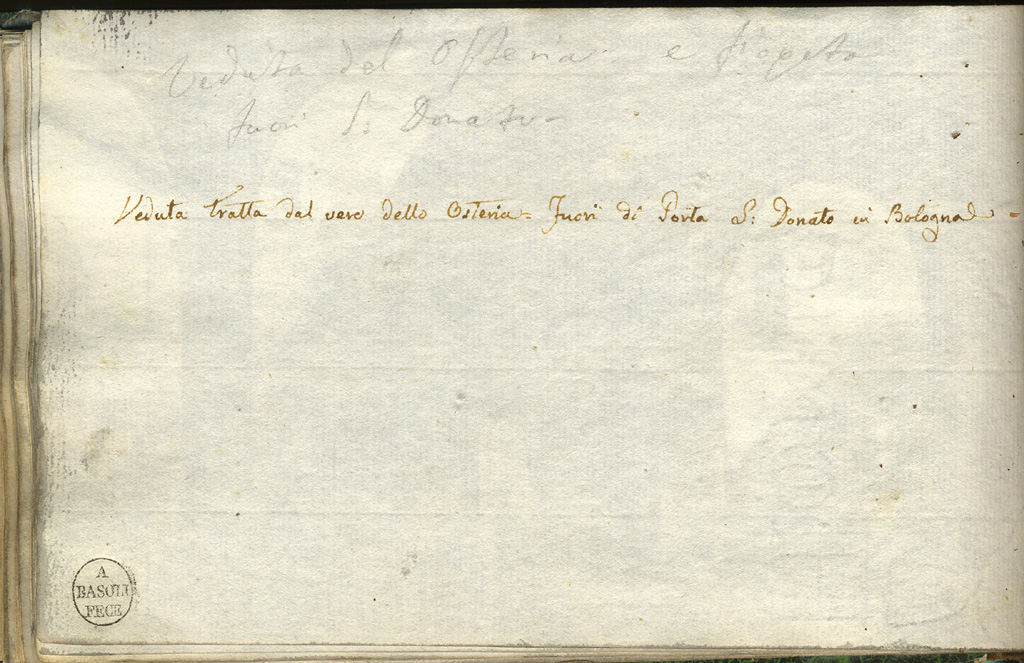 Veduta del Osteria e
fuori S: Donato -
Veduta tratta dal vero dello Osteria = Fuori di Porta S: Donato in Bologna =
A
BASOLI
FECE